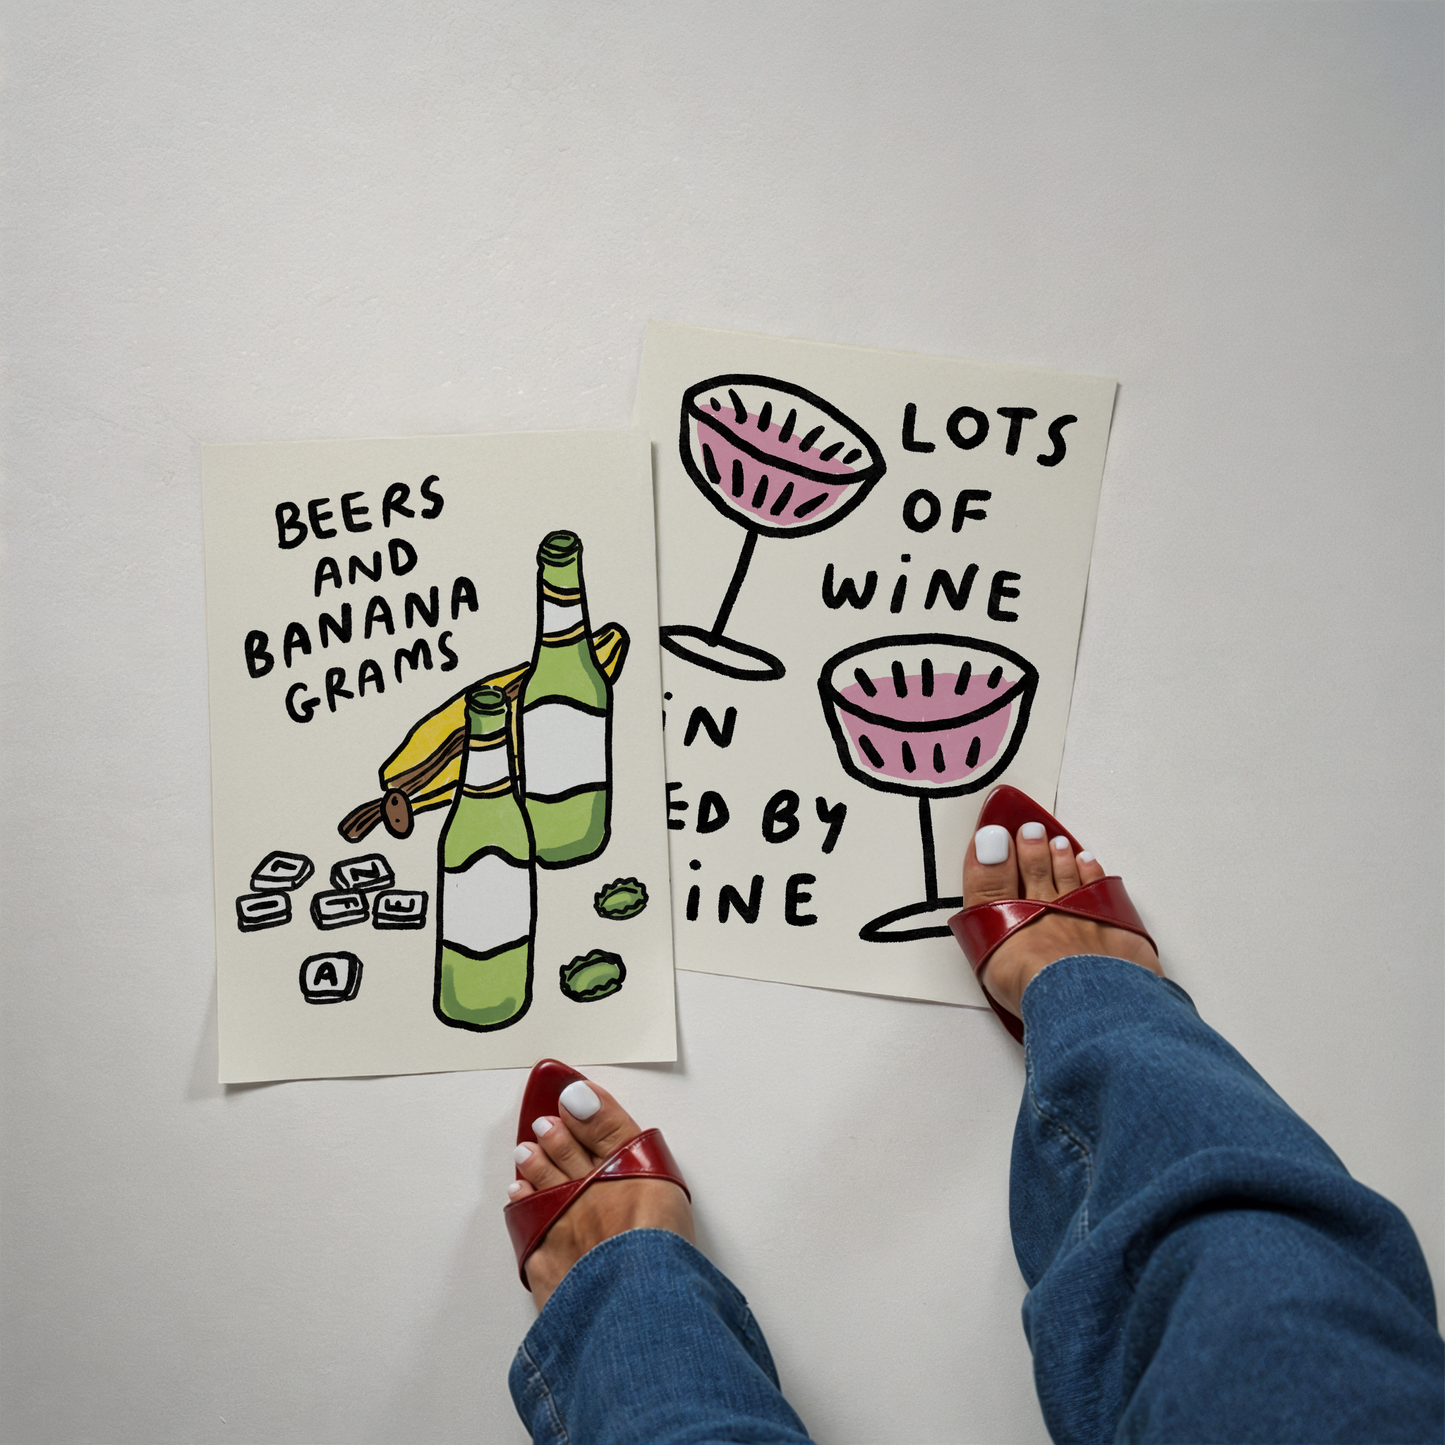 BEERS
AND
BANANA
GRAMS
N
E
A
LOTS
OF
WiNE
iN
ED BY
iNE